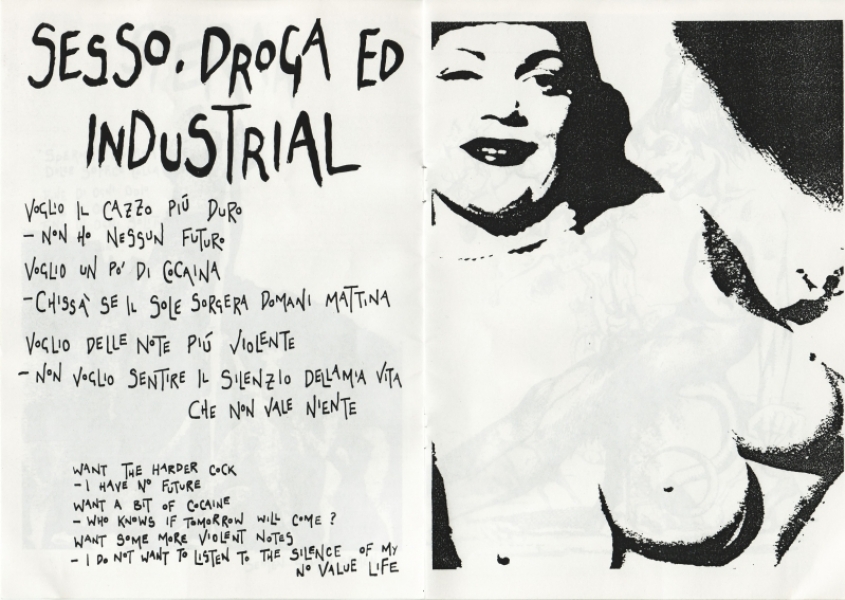 SESSO, DROGA ED
INDUSTRIAL
VOGLIO IL CAZZO PIÚ DURO
- NON HO NESSUN FUTURO
VOGLIO UN PO' DI COCAINA
- CHISSA' SE IL SOLE SORGERA DOMANI MATTINA
VOGLIO DELLE NOTE PIÚ VIOLENTE
- NON VOGLIO SENTIRE IL SILENZIO DELLA MIA VITA
CHE NON VALE NIENTE
WANT THE HARDER COCK
- I HAVE NO FUTURE
WANT A BIT OF COCAINE
- WHO KNOWS IF TOMORROW WILL COME ?
WANT SOME MORE VIOLENT NOTES
- I DO NOT WANT TO LISTEN TO THE SILENCE OF MY
NO VALUE LIFE